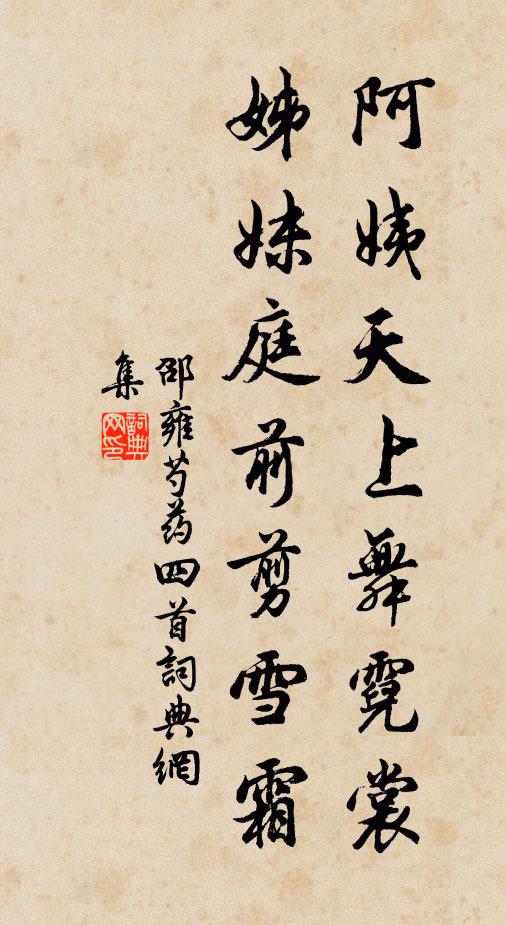 阿姨天上舞霓裳
姊妹庭前剪雪霜
邵雍芍药四首詞典網
集
詞典
网印